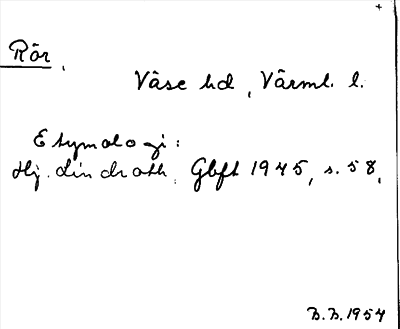 Rör.
Väse hd, Värml. l.
Etymologi:
Hj. Lindroth, Gbft 1945, s. 58.
B.B. 1954